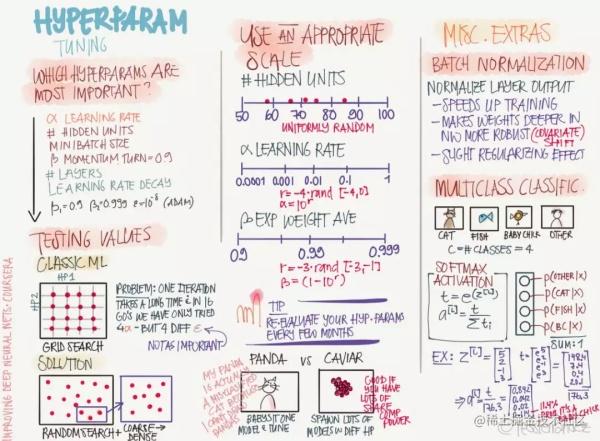 HYPERPARAM
TUNING
WHICH HYPERPARAMS ARE
MOST IMPORTANT?
α LEARNING RATE
# HIDDEN UNITS
MINIBATCH SIZE
β MOMENTUM TURN=0.9
# LAYERS
LEARNING RATE DECAY
β₁=0.9 β₂=0.999 ε=10⁻⁸ (ADAM)
TESTING VALUES
CLASSIC ML
HP1
HP2
GRID SEARCH
PROBLEM: ONE ITERATION
TAKES A LONG TIME & IN 16
GO'S WE HAVE ONLY TRIED
4α - BUT 4 DIFF ε
NOT AS IMPORTANT
SOLUTION
RANDOM SEARCH +
COARSE→
DENSE
IMPROVING DEEP NEURAL NETS · COURSERA
USE AN APPROPRIATE
SCALE
# HIDDEN UNITS
50 60 70 80 90 100
UNIFORMLY RANDOM
α LEARNING RATE
0.0001 0.001 0.01 0.1 1
r=-4·rand [-4,0]
α=10ʳ
β EXP WEIGHT AVE
0.9 0.99 0.999
r=-3·rand [-3,-1]
β=(1-10ʳ)
TIP
RE-EVALUATE YOUR HYP. PARAMS
EVERY FEW MONTHS
PANDA VS CAVIAR
MY PANDA
IS ACTUALLY
A MISUNDERSTOOD
CAT BECAUSE
I CAN'T DRAW
PANDAS
BABYSIT ONE
MODEL & TUNE
GOOD IF
YOU HAVE
LOTS OF
SPARE
COMP
POWER
SPAWN LOTS OF
MODELS W DIFF HP
MISC. EXTRAS
BATCH NORMALIZATION
NORMALIZE LAYER OUTPUT
- SPEEDS UP TRAINING
- MAKES WEIGHTS DEEPER IN
NW MORE ROBUST (COVARIATE)
SHIFT
- SLIGHT REGULARIZING EFFECT
MULTICLASS CLASSIFIC.
CAT FISH BABY CHICK OTHER
C = # CLASSES = 4
SOFTMAX
ACTIVATION
t=e^(z^[L])
a^[L]=t/Σtᵢ
P(OTHER|X)
P(CAT|X)
P(FISH|X)
P(BC|X)
SUM: 1
EX: z^[L]=[5 2 -1 3] t=[e⁵ e² e⁻¹ e³]=[148.4 7.4 0.4 20.1]
176.3
⇒ a^[L]=t/176.3=[0.842 0.042 0.002 0.114]
11.4%
IT'S A
BABY CHICK
@稀土掘金技术社区